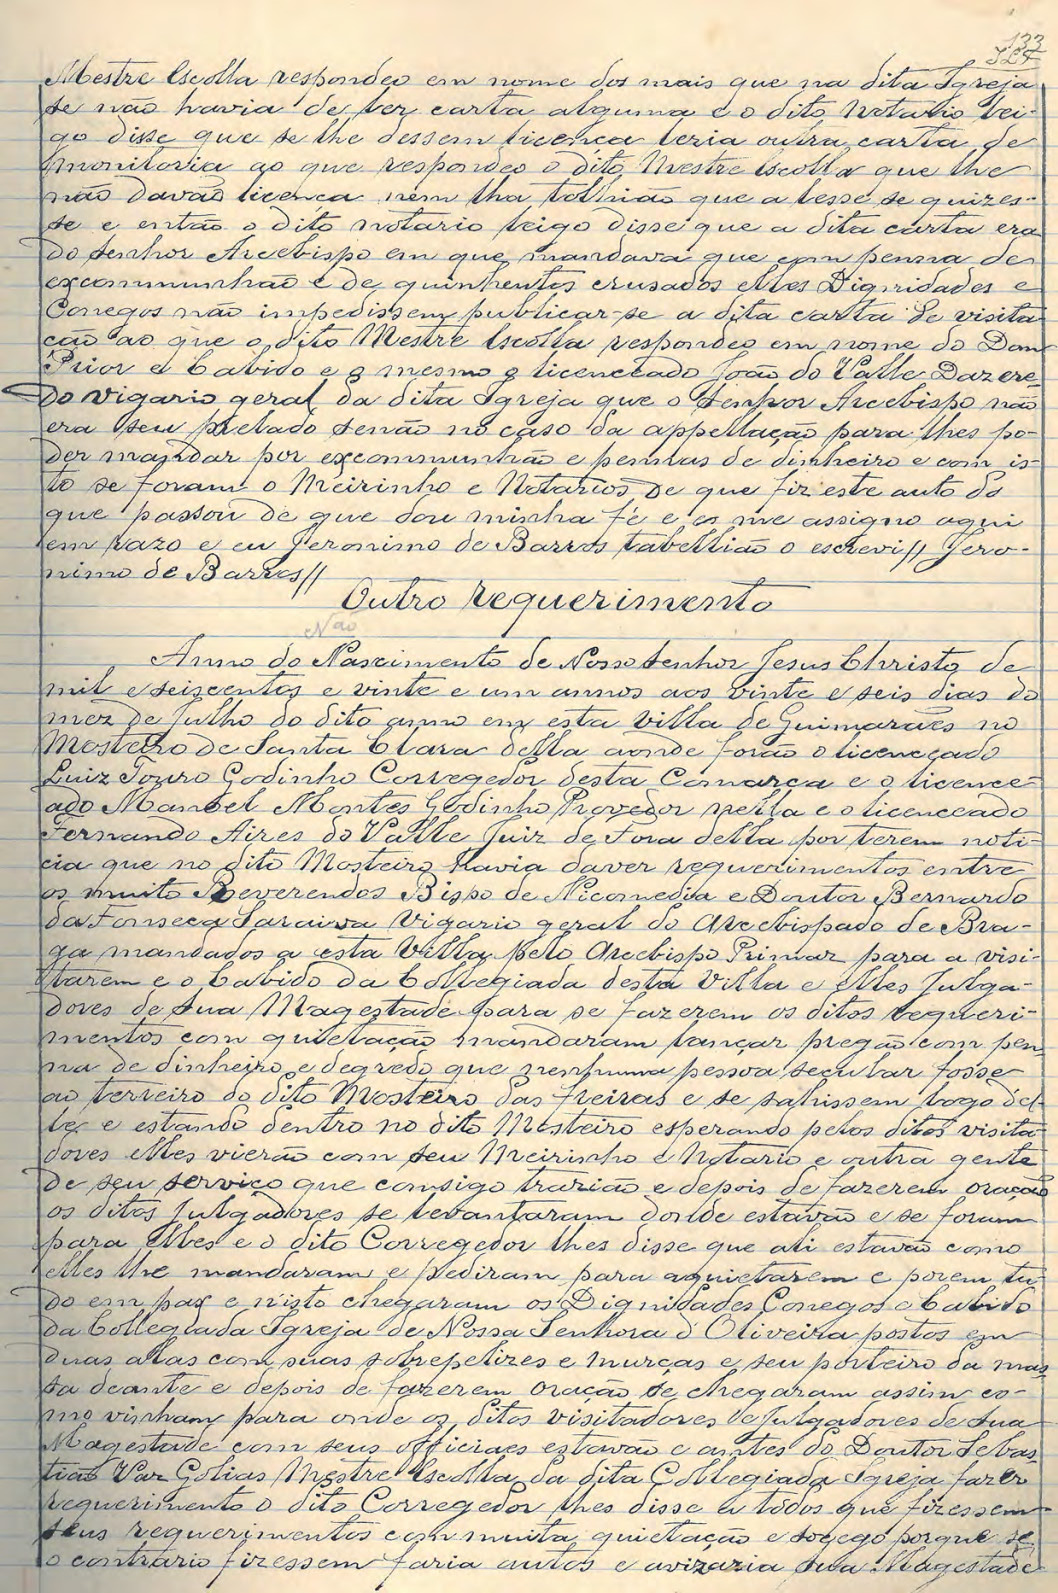 133
Mestre Escolla respondeo em nome dos mais que na dita Igreja
se não havia de ler carta alguma e o dito Notario lei-
go disse que se lhe dessem licença leria outra carta de
monitoria ao que respondeo o dito Mestre Escolla que lhe
não davão licenca nem lha tolhião que a lesse se quizes-
se e então o dito notario leigo disse que a dita carta era
do Senhor Arcebispo em que mandava que com penna de
excommunhão e de quinhentos crusados elles Dignidades e
Conegos não impedissem publicar-se a dita carta de visita
cão ao que o dito Mestre Escolla respondeo em nome do Dom
Prior e Cabido e o mesmo o licenceado João do Valle Dazere-
do vigario geral da dita Igreja que o Senhor Arcebispo não
era seu prelado senão no caso da appellação para lhes po-
der mandar por excommunhão e pennas de dinheiro e com is-
to se foram o Meirinho e Notarios de que fiz este auto do
que passou de que dou minha fé e os me assigno aqui
em razo e eu Jeronimo de Barros tabellião o escrevi// Jero-
nimo de Barros//
Outro requerimento
Não
Anno do Nascimento de Nosso Senhor Jesus Christo de
mil e seiscentos e vinte e um annos aos vinte e seis dias do
mez de Julho do dito anno em esta villa de Guimarães no
Mosteiro de Santa Clara della aonde forão o licenceado
Luiz Godinho Corregedor desta Comarca e o licence-
ado Manoel Montes Godinho Provedor nella e o licenceado
Fernando Aires do Valle Juiz de Fora della por terem noti-
cia que no dito Mosteiro havia daver requerimentos entre
os muito Reverendos Bispo de Nicomedia e Doutor Bernardo
da Fonseca Saraiva Vigario geral do Arcebispado de Bra-
ga mandados a esta Villa pelo Arcebispo Primaz para a visi-
tarem e o Cabido da Collegiada desta Villa e elles Julga-
dores de Sua Magestade para se fazerem os ditos requeri-
mentos com quietação mandaram lançar pregão com pen-
na de dinheiro e degredo que nenhuma pessoa secular fosse
ao terreiro do dito Mosteiro das freiras e se sahissem logo del-
le e estando dentro no dito Mosteiro esperando pelos ditos visita-
dores elles vierão com seu Meirinho e Notario e outra gente
de seu serviço que comsigo trazião e depois de fazerem oração
os ditos Julgadores se levantaram donde estavão e se foram
para elles e o dito Corregedor lhes disse que ali estavão como
elles lhe mandaram e pediram para aquietarem e porem tu-
do em paz e nisto chegaram os Dignidades Conegos e Cabido
da Collegiada Igreja de Nossa Senhora d'Oliveira postos em
duas alas com suas sobrepelizes e murças e seu porteiro da mas-
sa deante e depois de fazerem oração se chegaram assim co-
mo vinham para onde os ditos visitadores e Julgadores de Sua
Magestade com seus officiaes estavão e antes do Doutor Sebas
tião Vaz Golias Mestre Escolla da dita Collegiada Igreja fazer
requerimento o dito Corregedor lhes disse a todos que fizessem
seus requerimentos com muita quietação e socego porque se
o contrario fizessem faria autos e avizaria Sua Magestade